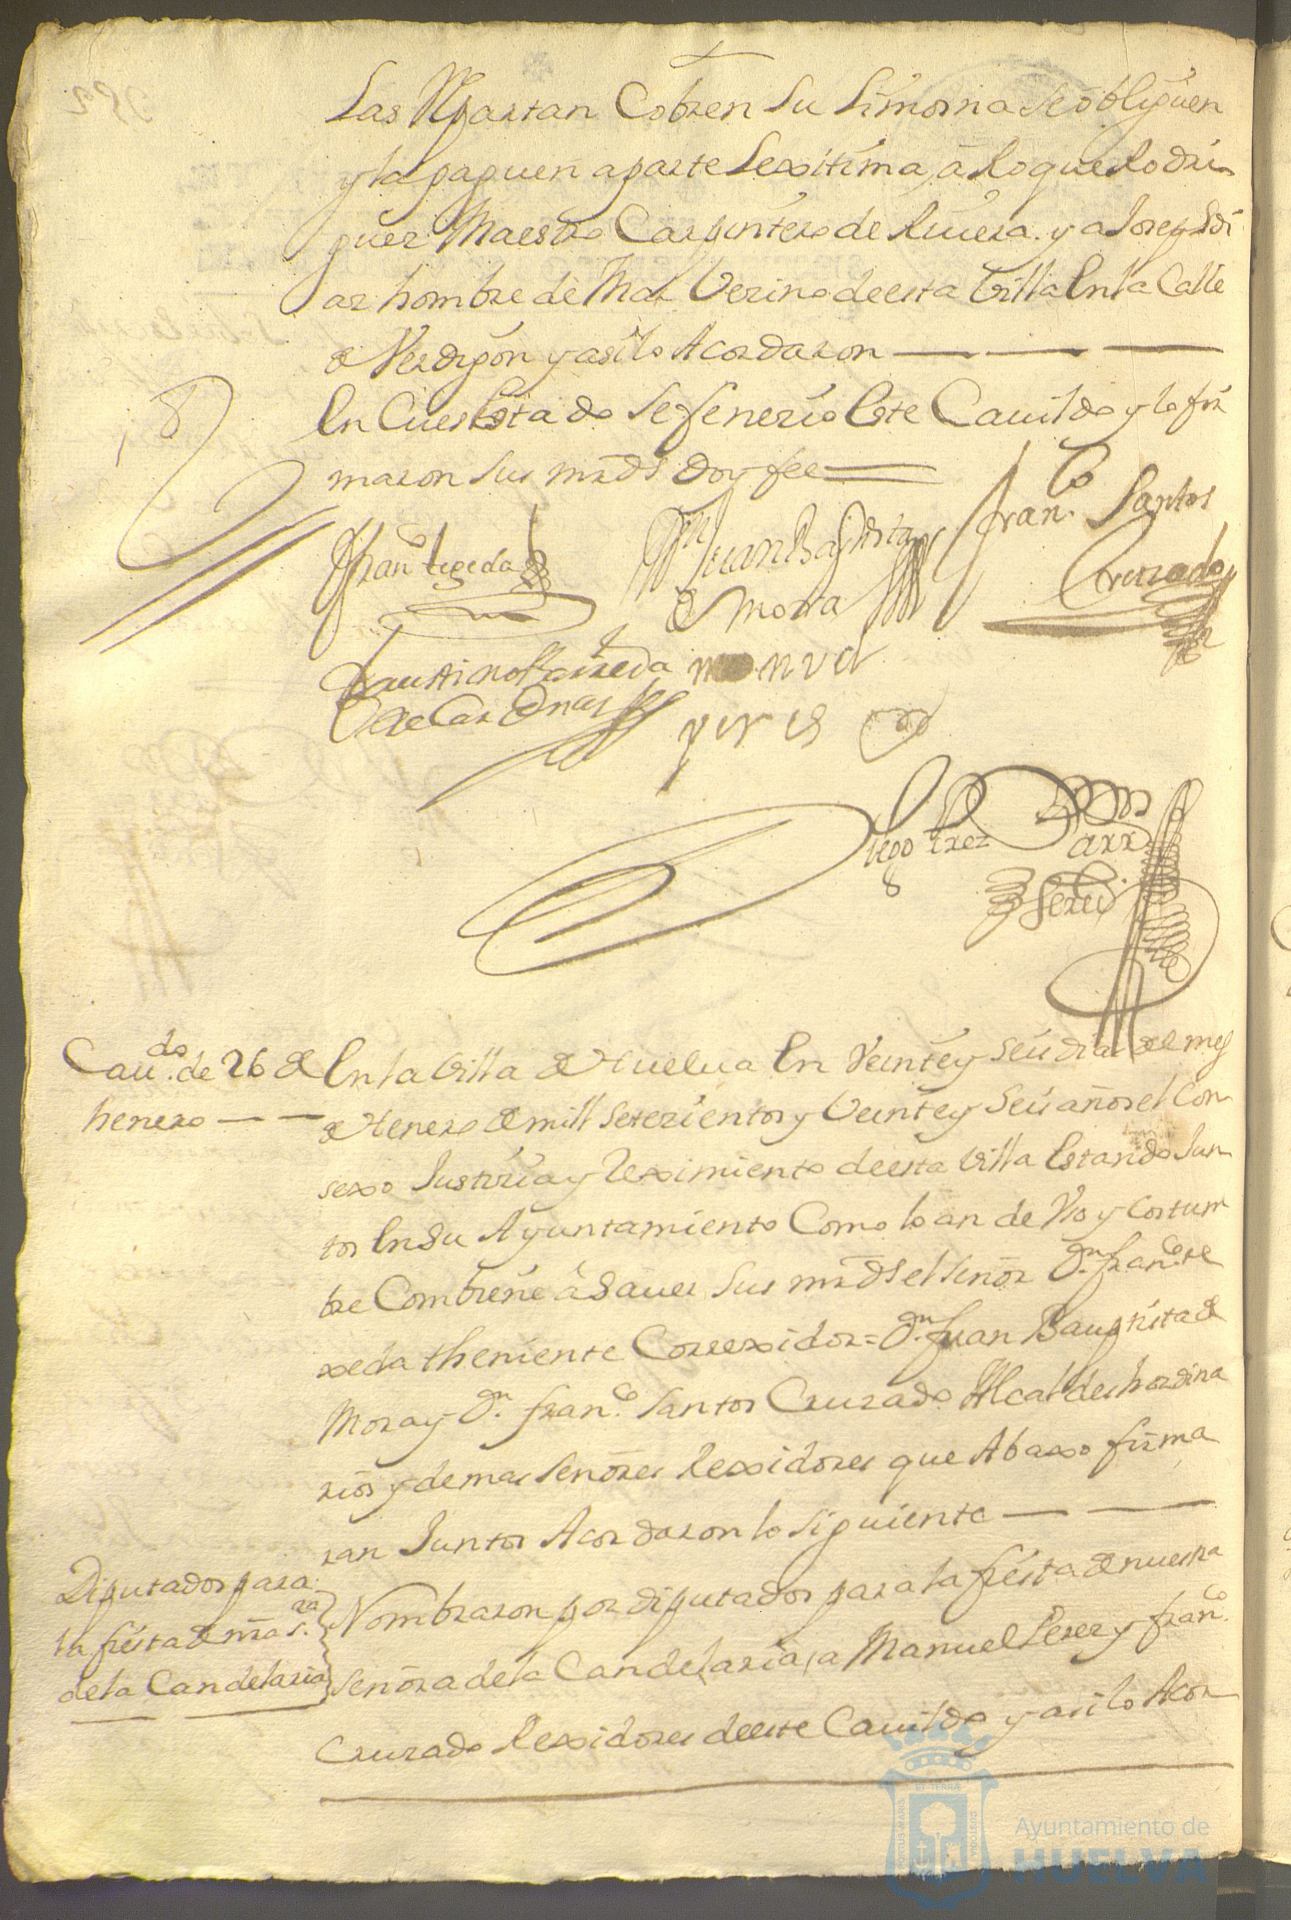 las Repartan Cobren su Limosna se obliguen
y la paguen a parte Lexitima, a Roque Rodri
guez Maestro Carpintero de Riuera. y a Joseph Di
az hombre de Mar Vezino de esta Villa En la Calle
de Verdigon y asi lo Acordaron
En Cuesto estado se fenezio Este Cauildo y lo fir
maron sus mrds Doy fee
Franco tegeda
Dn Juan Baptista
de Mora
Franco Santos
Cruzado
faustino Cañeda
de Cardenas
manuel
peres
Diego Perez
Caudo. de 26 de
henero
En la Villa de Huelua En Veinte y seis dias del mes
de Henero de mill setezientos y Veinte y Seis años el Con
sexo Justizia y Reximiento de esta Villa Estando Jun
tos En Su Ayuntamiento Como lo an de Vso y Costum
bre Combiene a Sauer sus mrds el señor Dn. Franco te
xeda theniente Correxidor = Dn. Juan Bauptista de
Mora y Dn. franco. Santos Cruzado Alcaldes hordina
rios y demas señores Rexidores que Abaxo firma
ran Juntos Acordaron lo siguiente
Diputados para
la fiesta de nra Sra.
de la Candelaria
Nombraron por diputados para la fiesta de nuestra
señora de la Candelaria, a Manuel Perez y franco.
Cruzado Rexidores de este Cauildo y asi lo Acor
Ayuntamiento de
HUELVA